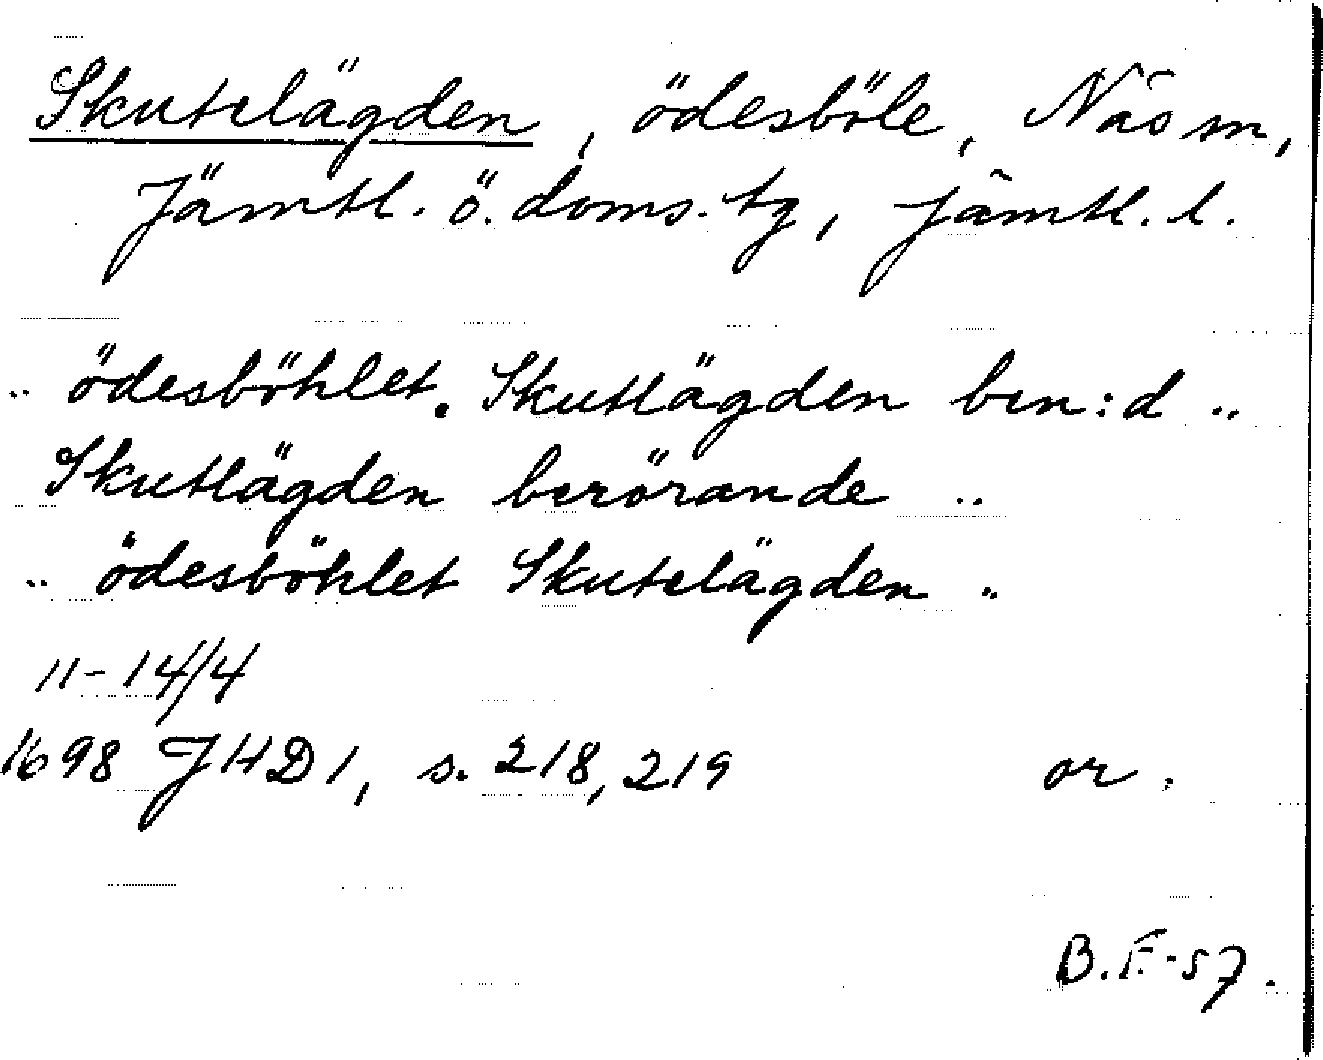 Skutelägden, ödesböle, Näs sn,
Jämtl. ö. doms. tg, Jämtl. l.
.. ödesböhlet. Skutlägden ben:d ..
Skutlägden berörande ..
.. ödesböhlet Skutelägden ..
11-14/4
1698 JHD 1, s. 218, 219 or.
B.F-57.